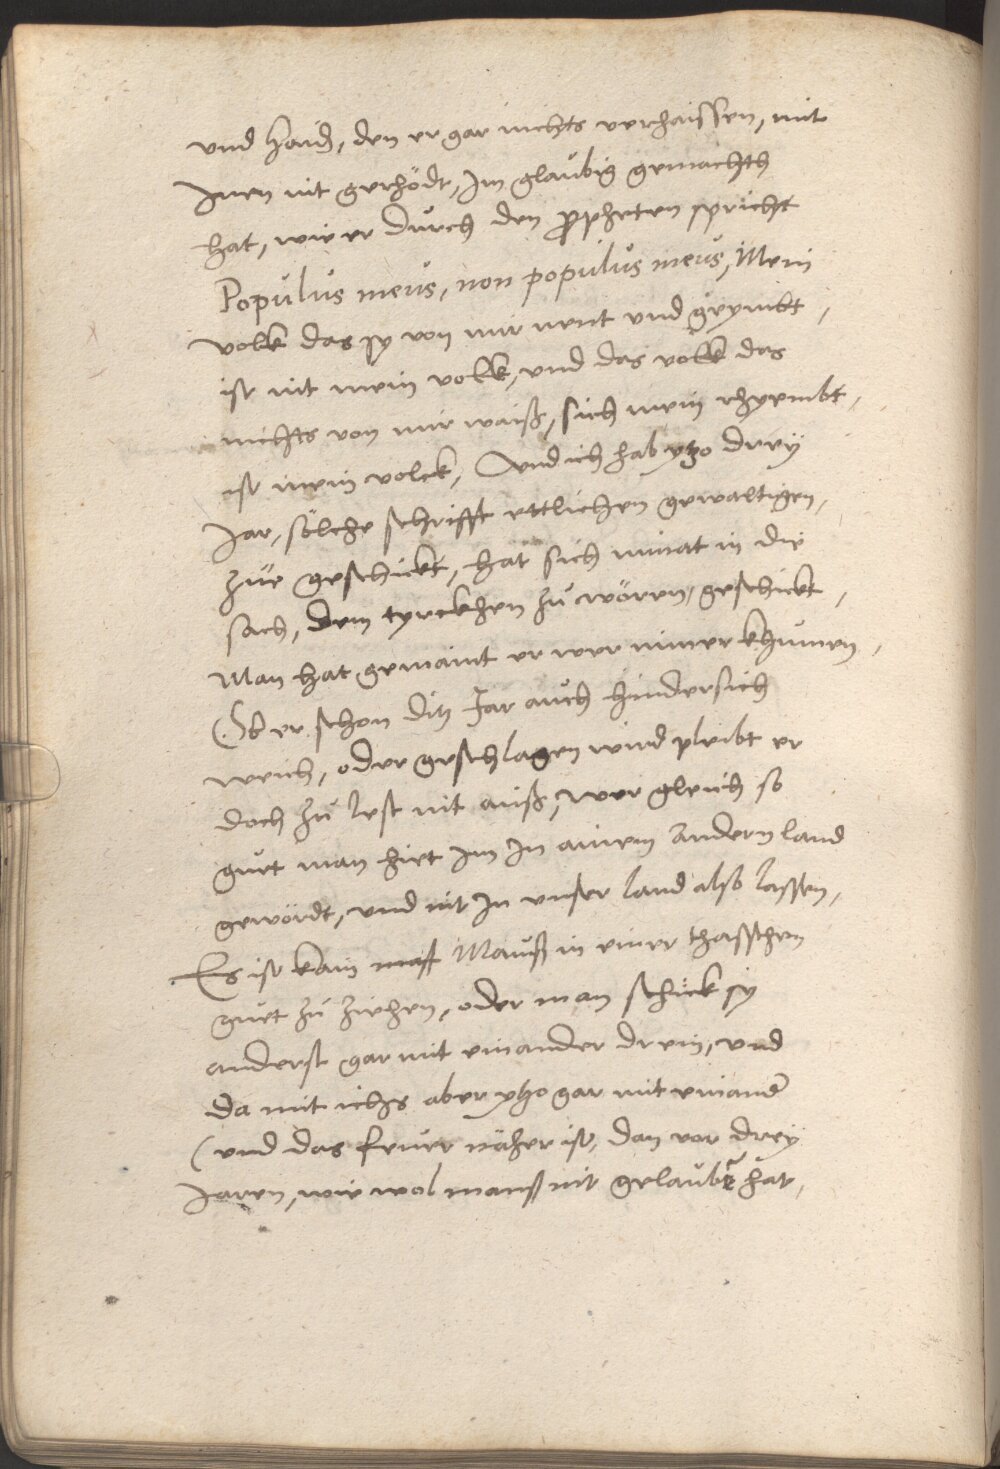 und haid, den er gar nichts verhaissen, mit
Inen nit gerhödt, Im glaubig gemachth
hat, wie er durch den propheten spricht
Populus meus, non populus meus, Mein
volkk das sy von mir nent und greymbt,
ist nit mein volkk, und das volkk das
nichts von mir waiß, sich mein rhyembt,
ist mein volck, Und ich hab ytzo drey
Jar, sölche schrifft ettlichen gewaltigen,
zue geschickt, hat sich nimat in die
sach, dem tyrckhen zu wören, geschickt,
Man hat gemaint er wer nimer khumen,
Ob er schon ditz Jar auch hindersich
weich, oder geschlagen wird pleibt er
doch zu lest nit auß, wer gleich so
guet man hiet Im In ainem Andern land
gewördt, und nit In unser land also lassen,
Es ist kain Mauß in einer thasschen
guet zu ziehen, oder man schick sy
anderst gar mit einander drein, und
da mit ichs aber ytzo gar mit einand
(und das feuer näher ist, dan vor drey
Jaren, wie wol manß nit gelaubt hat,